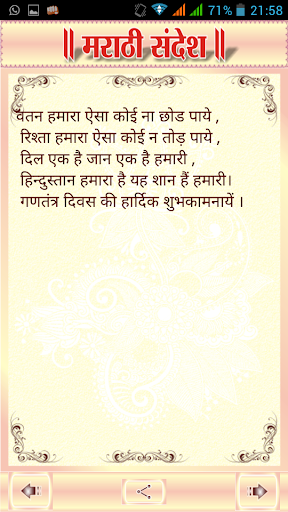 71% 21:58
॥ मराठी संदेश ॥
वतन हमारा ऐसा कोई ना छोड पाये ,
रिश्ता हमारा ऐसा कोई न तोड़ पाये ,
दिल एक है जान एक है हमारी ,
हिन्दुस्तान हमारा है यह शान हैं हमारी।
गणतंत्र दिवस की हार्दिक शुभकामनायें ।